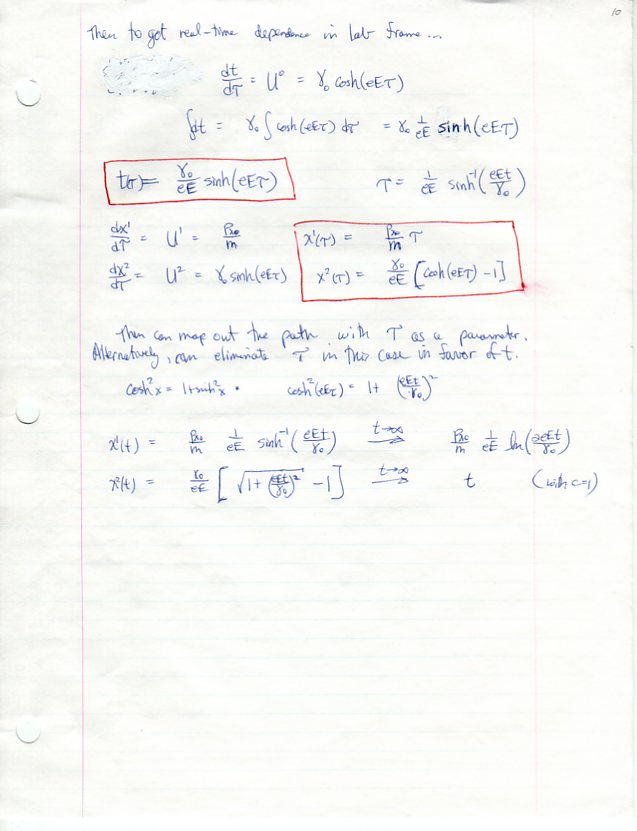 10
Then to get real-time dependence in lab frame...
dt/dτ = U⁰ = γ₀ cosh(eEτ)
∫dt = γ₀ ∫ cosh(eEτ) dτ = γ₀ 1/eE sinh(eEτ)
t(τ) = γ₀/eE sinh(eEτ) τ = 1/eE sinh⁻¹(eEt/γ₀)
dx¹/dτ = U¹ = Pxo/m x¹(τ) = Pxo/m τ
dx²/dτ = U² = γ₀ sinh(eEτ) x²(τ) = γ₀/eE [cosh(eEτ) - 1]
Then can map out the path with τ as a parameter.
Alternatively, can eliminate τ in this case in favor of t.
cosh²x = 1+sinh²x • cosh²(eEτ) = 1 + (eEt/γ₀)²
x¹(t) = Pxo/m 1/eE sinh⁻¹(eEt/γ₀) t→∞ Pxo/m 1/eE ln(2eEt/γ₀)
x²(t) = γ₀/eE [√(1+(eEt/γ₀)²) - 1] t→∞ t (with c=1)